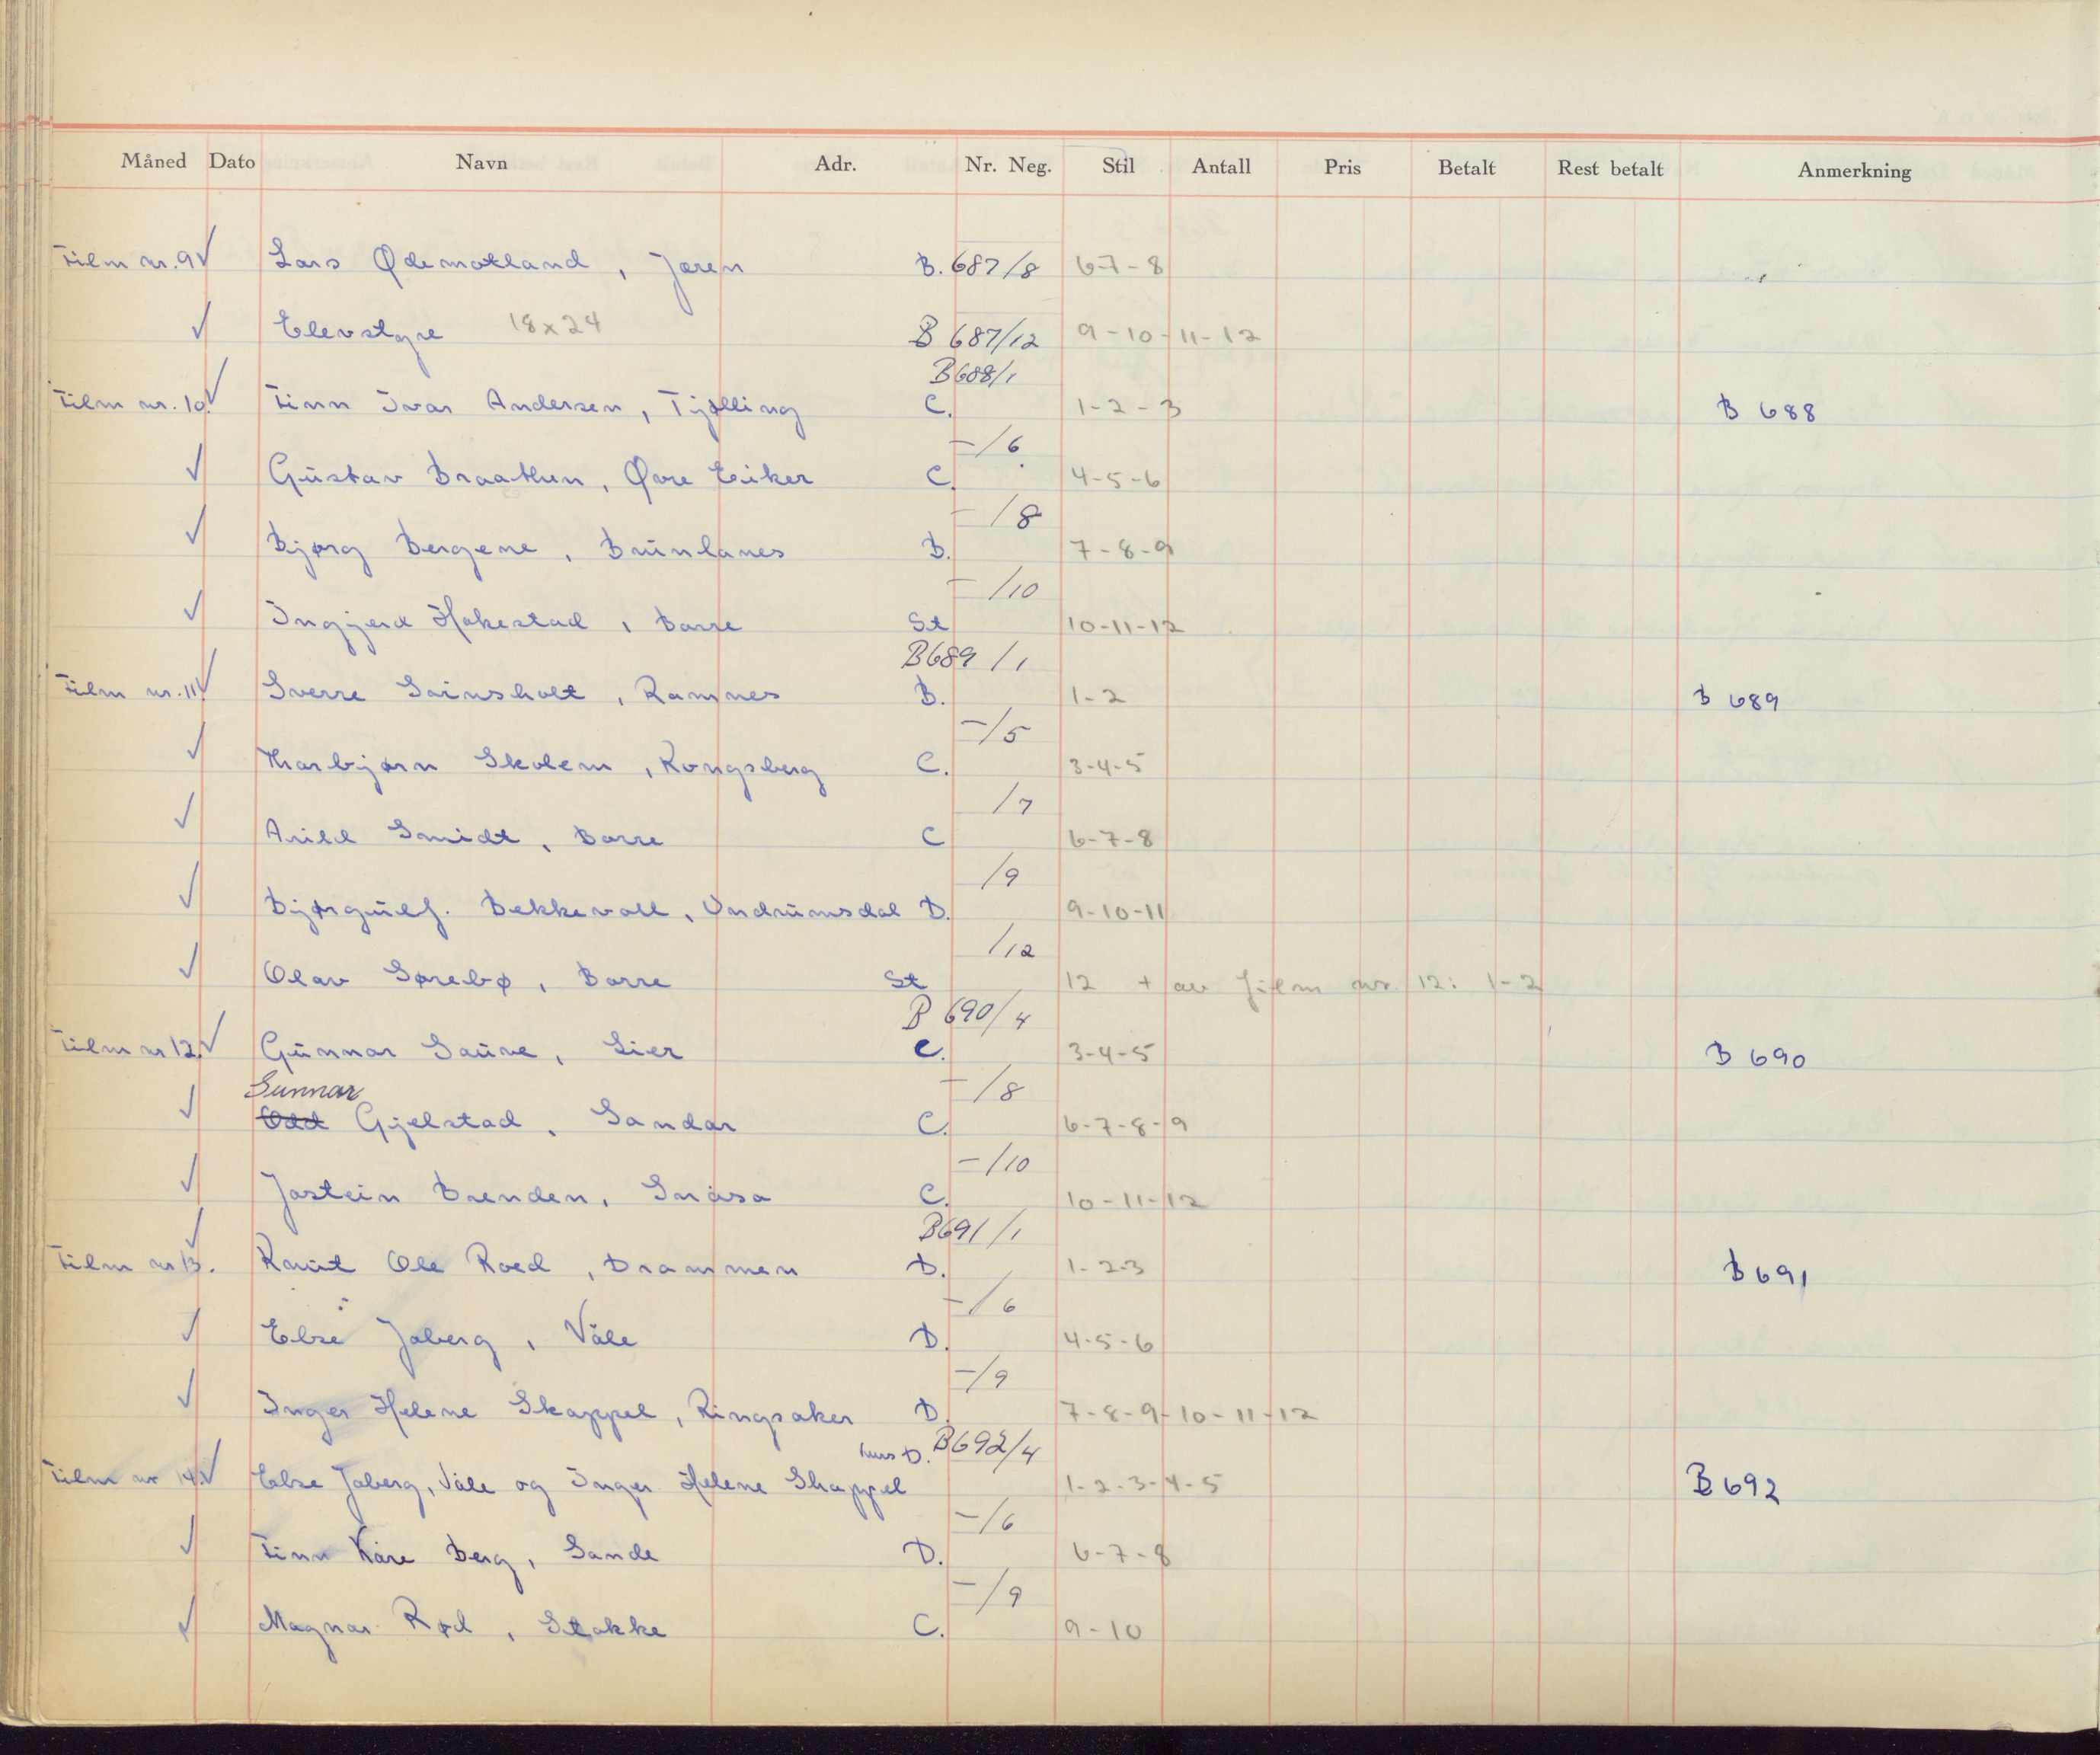 Måned Dato Navn Adr. Nr. Neg. Stil Antall Pris Betalt Rest betalt Anmerkning
Film nr. 9 ✓ Lars Ødemotland, Jæren B. 687/8 6-7-8
✓ Elevstyre 18x24 B 687/12 9-10-11-12
B688/1
Film nr. 10. ✓ Finn Ivar Andersen, Tjølling C. 1-2-3 B 688
-/6
✓ Gustav Braathen, Øvre Eiker C. 4-5-6
-/8
✓ Bjørg Bergene, Brunlanes D. 7-8-9
-/10
✓ Ingjerd Hakestad, Borre St 10-11-12
B689/1
Film nr. 11. ✓ Sverre Svinsholt, Ramnes B. 1-2 B 689
-/5
✓ Thorbjørn Skolem, Kongsberg C. 3-4-5
/7
✓ Arild Smidt, Borre C 6-7-8
/9
✓ Bjørgulf. Bekkevoll, Undrumsdal D. 9-10-11
/12
✓ Olav Sørebø, Borre St 12 + av film nr 12: 1-2
B 690/4
Film nr 12. ✓ Gunnar Saune, Lier C. 3-4-5 B 690
Gunnar -/8
✓ Odd Gjelstad, Sandar C. 6-7-8-9
-/10
✓ Jostein Brenden, Snåsa C. 10-11-12
B691/1
Film nr 13. ✓ Knut Ole Roed, Drammen D. 1-2-3 B 691
-/6
✓ Else Joberg, Våle D. 4-5-6
-/9
✓ Inger Helene Skappel, Ringsaker D. 7-8-9-10-11-12
D. B692/4
Film nr 14. ✓ Else Joberg, Våle og Inger Helene Skappel 1-2-3-4-5 B 692
-/6
✓ Finn Kåre Berg, Sande D. 6-7-8
-/9
✓ Magnar Rød, Stokke C. 9-10